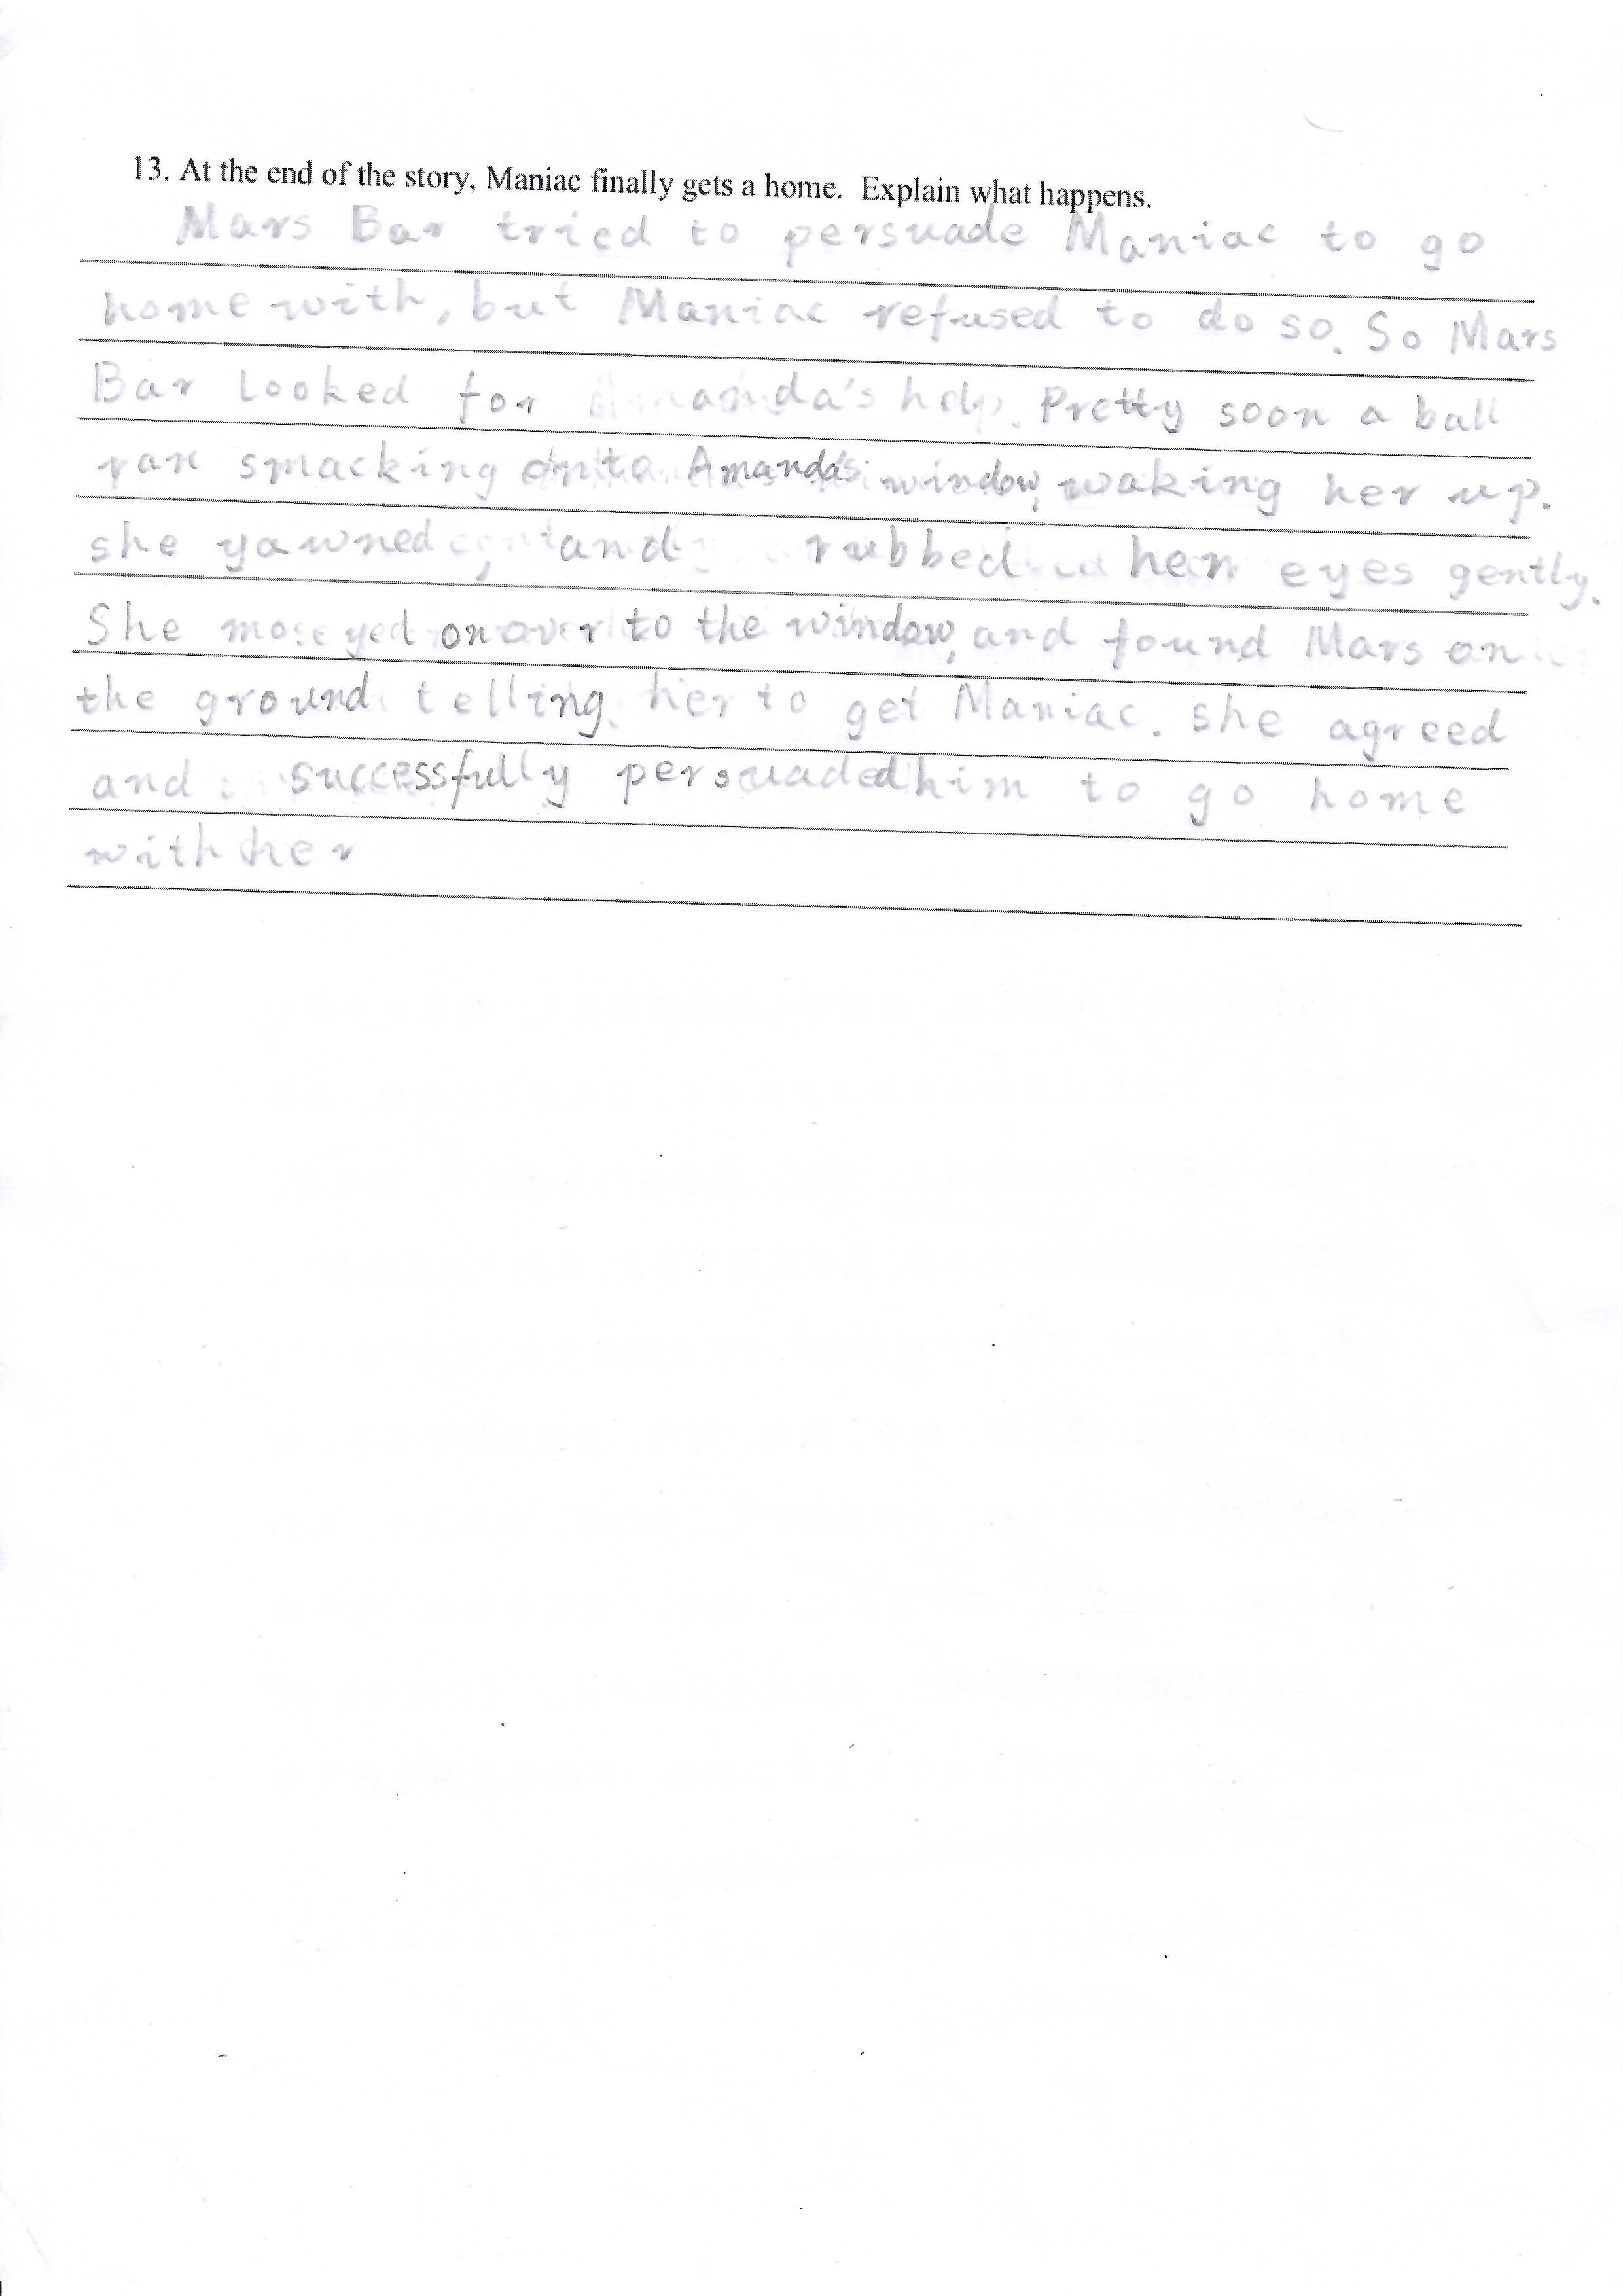 13. At the end of the story, Maniac finally gets a home. Explain what happens.
Mars Bar tried to persuade Maniac to go
home with, but Maniac refused to do so. So Mars
Bar looked for Amanda's help. Pretty soon a ball
ran smacking onto Amanda's window, waking her up.
she yawned, and rubbed her eyes gently.
She moseyed on over to the window, and found Mars on
the ground telling her to get Maniac. she agreed
and successfully persuaded him to go home
with her